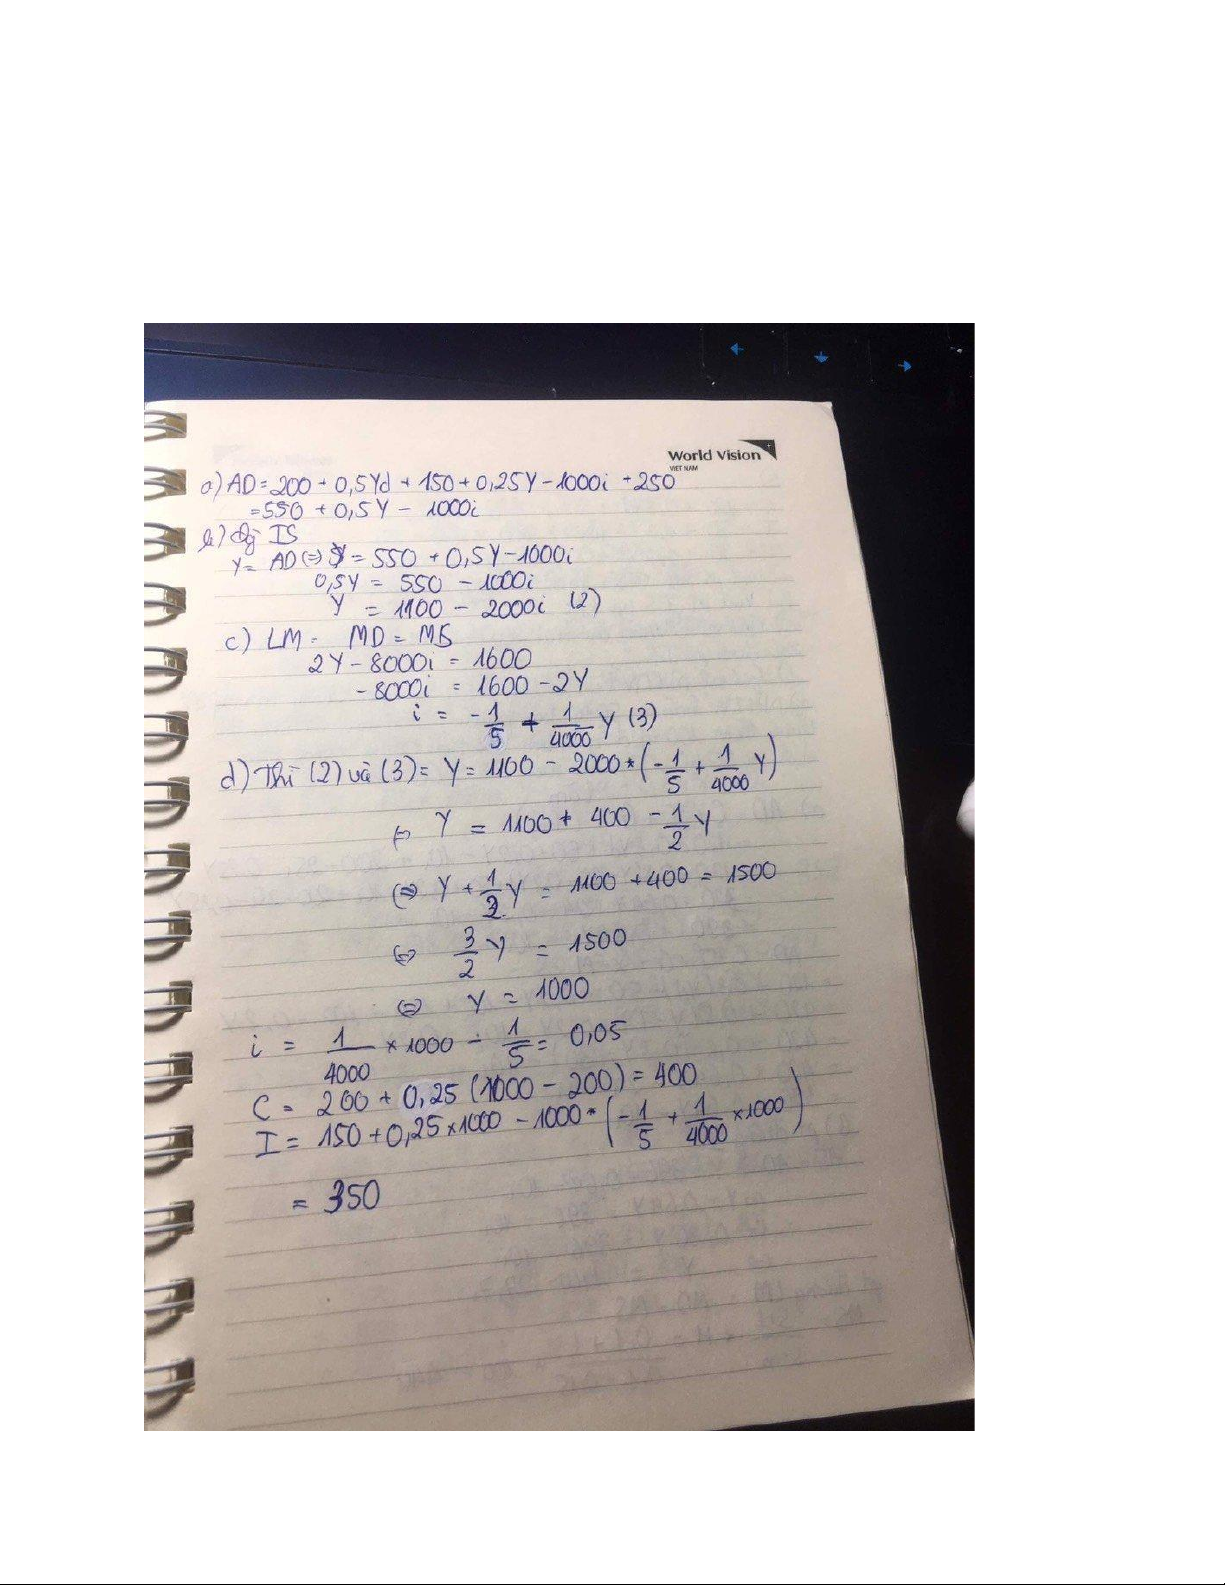 World Vision
VIET NAM
a) AD = 200 + 0,5Yd + 150 + 0,25Y - 1000i + 250
= 550 + 0,5Y - 1000i
b) IS
Y = AD (=) Y = 550 + 0,5Y - 1000i
0,5Y = 550 - 1000i
Y = 1100 - 2000i (2)
c) LM = MD = MS
2Y - 8000i = 1600
- 8000i = 1600 - 2Y
i = - 1/5 + 1/4000 Y (3)
d) (2) và (3) = Y = 1100 - 2000 * (- 1/5 + 1/4000 Y)
(=) Y = 1100 + 400 - 1/2 Y
(=) Y + 1/2 Y = 1100 + 400 = 1500
(=) 3/2 Y = 1500
(=) Y = 1000
i = 1/4000 × 1000 - 1/5 = 0,05
C = 200 + 0,25 (1000 - 200) = 400
I = 150 + 0,25 × 1000 - 1000 * (- 1/5 + 1/4000 × 1000)
= 350